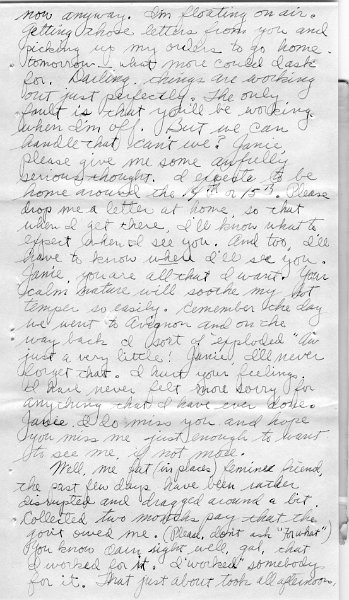 now anyway. I'm floating on air.
Getting those letters from you and
picking up my orders to go home
tomorrow. What more could I ask
for. Darling, things are working
out just perfectly. The only
fault is that you'll be working
when I'm off. But we can
handle that, can't we? Janie,
please give me some awfully
serious thought. I expect to be
home around the 14th or 15th. Please
drop me a letter at home so that
when I get there, I'll know what to
expect when I see you. And too, I'll
have to know where I'll see you.
Janie, you are all that I want. Your
calm nature will soothe my hot
temper so easily. Remember the day
we went to Avignon and on the
way back I sort of "exploded"
just a very little! Janie, I'll never
forget that. I hurt your feelings.
I have never felt more sorry for
anything that I have ever done.
Janie, I do miss you and hope
you miss me just enough to want
to see me, if not more.
Well, me fat (in places) feminine friend,
the past few days have been rather
disrupted and dragged around a bit.
Collected two months pay that the
gov't owed me. (Please, don't ask "For what")
You know darn right well, gal, that
I worked for it. I "worked" somebody
for it. That just about took all afternoon,